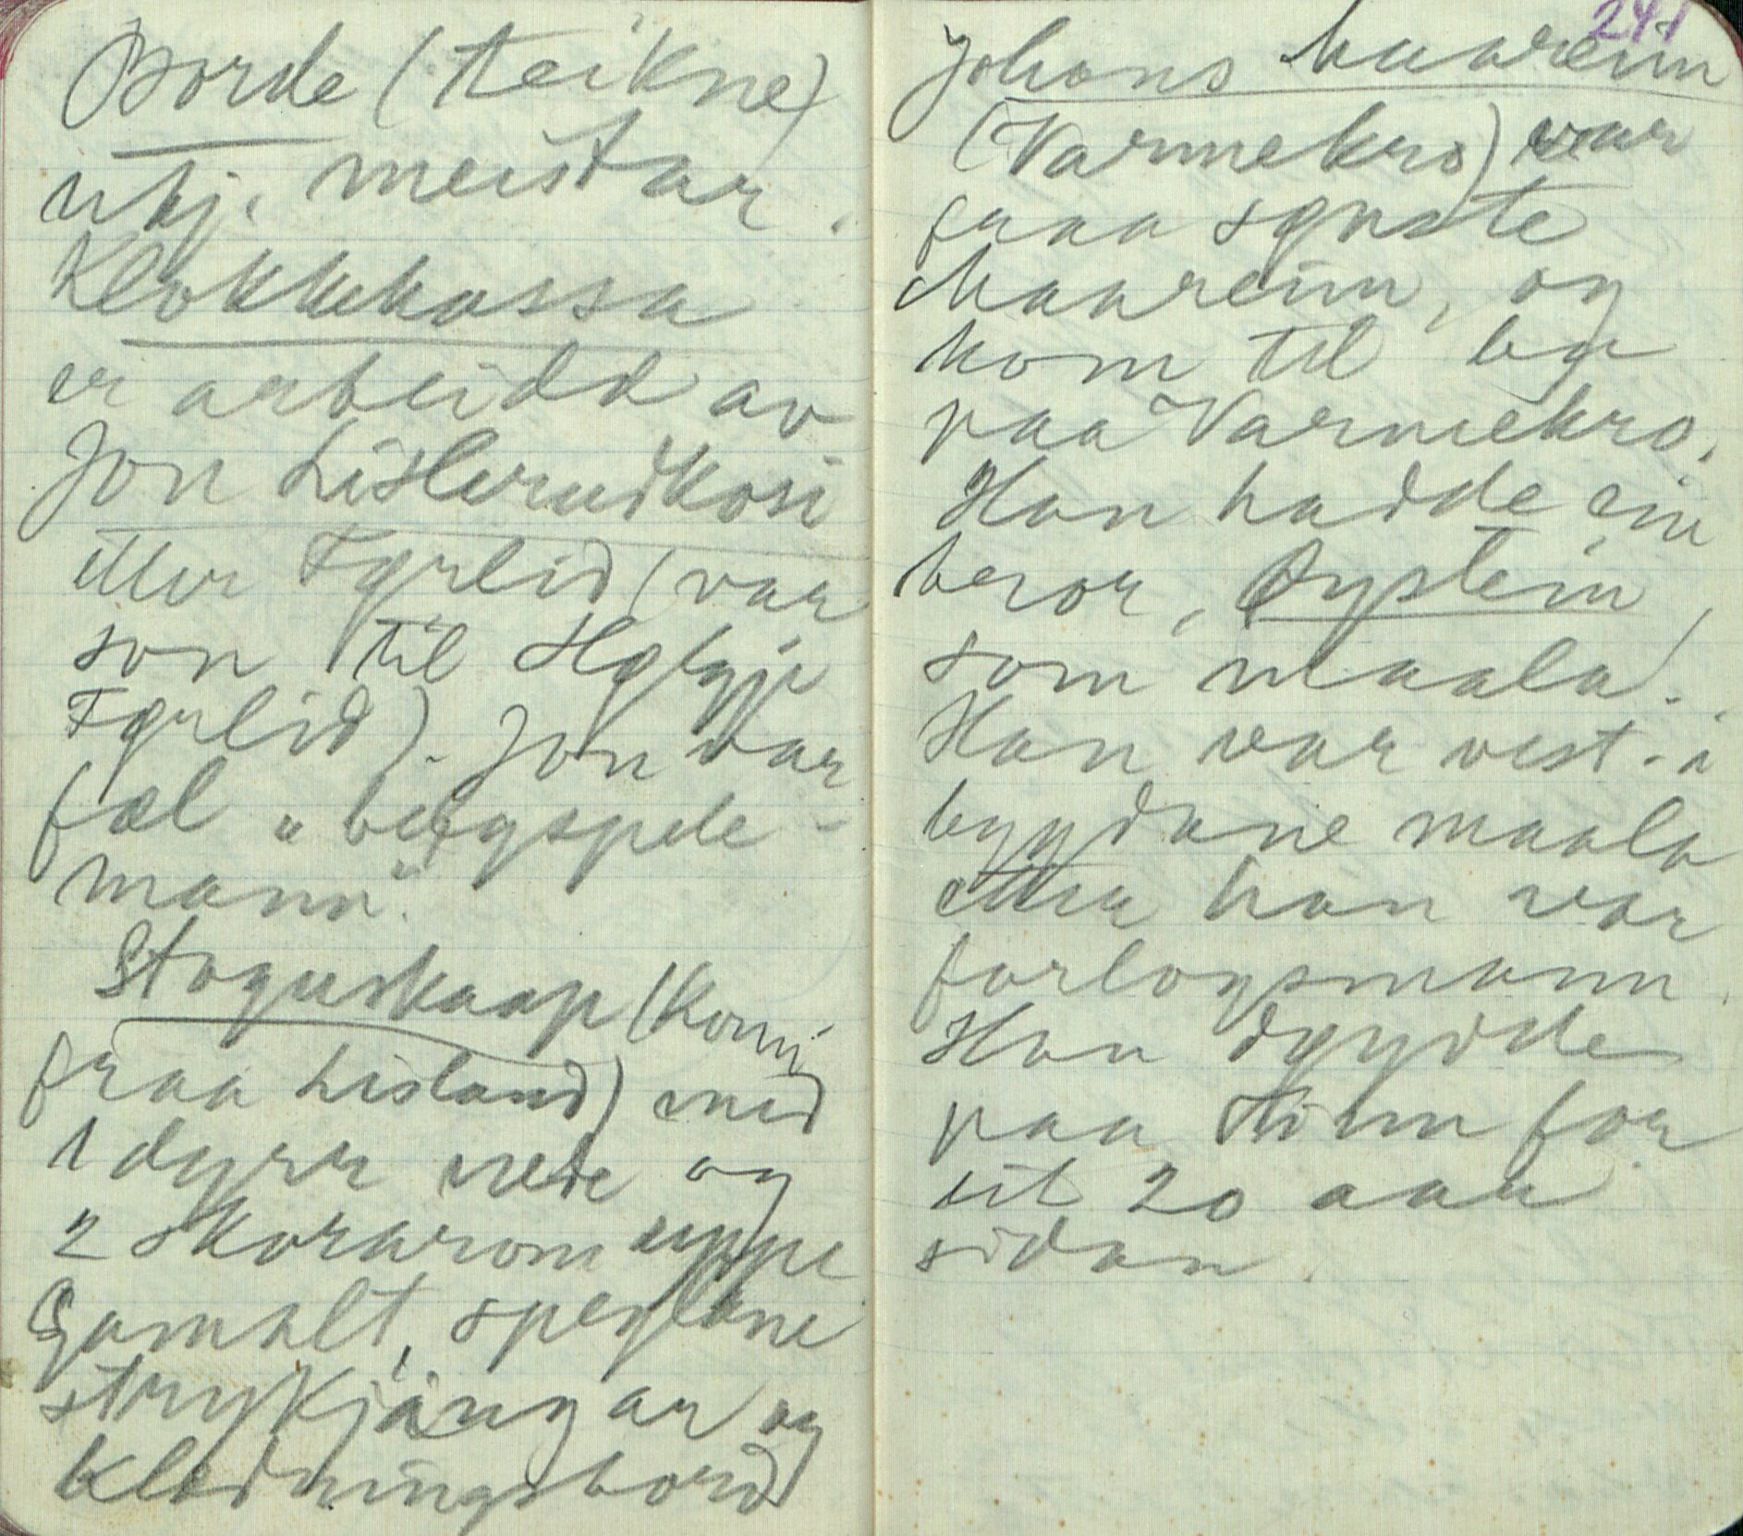 Borde (teikne)
ukj. meistar.
Klokkekassa
er arbeidd av
Jon Lislerudkosi
itter Tørlid (var
son til Hølgje
Tørlid). Jon var
fæl "bergspele-
mann".
Stoguskaap (Komi
fraa Lisland) med
1 dyrr nede og
2 skorarom uppe
Gamalt, speglane
strykjångar og
Klædningsbord
241
Johans Maareim
(Varmekro) var
fraa sønste
Maareim, og
kom til by
paa Varmekro.
Han hadde ein
beror, Øystein,
som maala.
Han var vest-i
bygdane maala
han var
forlogsmann.
Han døydde
paa Tinn for
eit 20 aar
sidan.